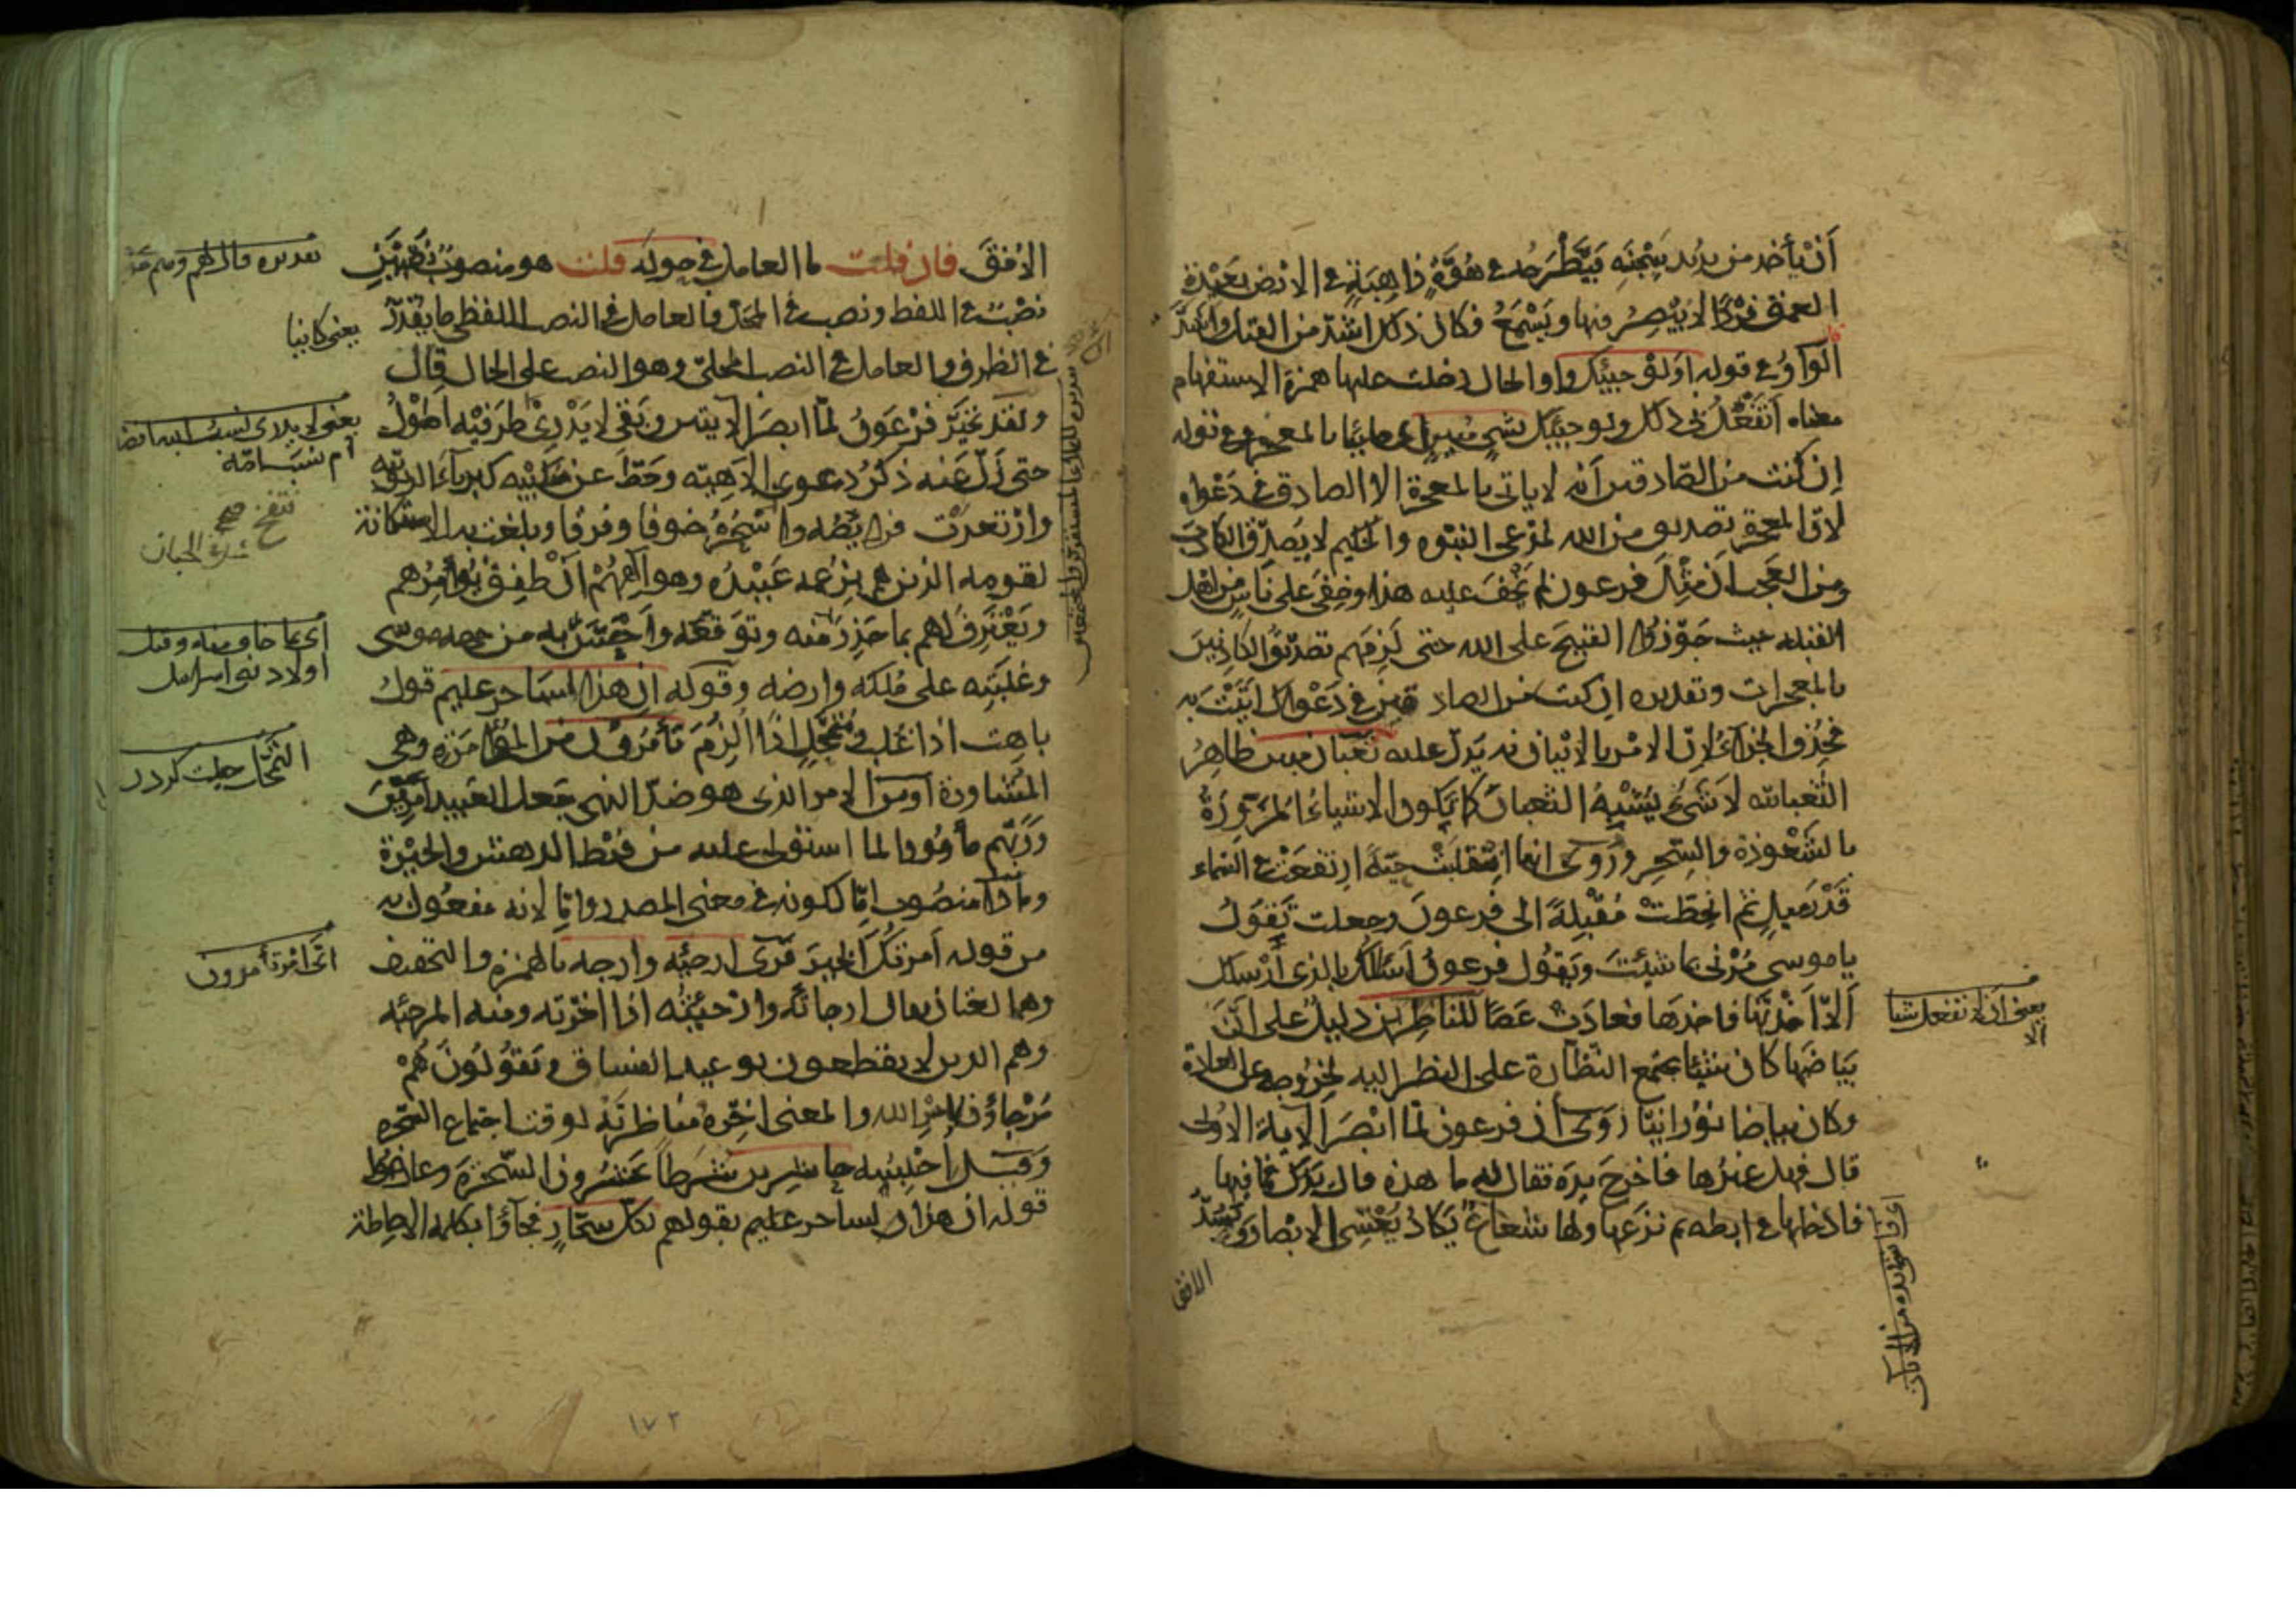 أَنْ يأخذ من يريد سَجْنَه فيَطْرَحه في هُوَّةٍ ذاهِبَةٍ في الارض بَعِيْدةِ
العمق فَرْدًا لا يُبْصِرُ فيها ويَسْمَعُ فكان ذلك اشدّ من القتل واشدَّ
الواوُ في قوله اَوَلَوْ جئتك واو الحال دخلت عليها همزة الاستفهام
معناه أتَفْعَلُ بي ذلك ولو جئتك بشيءٍ مُبِينٍ اى جائيًا بالمعجزة وفي قوله
إن كنت من الصّادقين أنه لا ياتي بالمعجزة الا الصادق في دَعْواه
لانّ المعجزة تصديق من الله لمدّعي النبوّه والحكيم لا يُصدّق الكاذبَ
ومن العَجب انّ مِثْلَ فرعون لم يَخْفَ عليه هذا وخفِيَ على ناسٍ من اهل
القبله حيث جَوّزوا القبيحَ على الله حتى لَزِمَهم تصديقُ الكاذبينَ
بالمعجزات وتقديره إن كنت من الصادقين في دَعْواك أَتَيْتَ به
فحُذِف الجزاءُ لانّ الامْر بالاتيان به يَدلّ عليه ثعبان مبين ظاهِرُ
الثُعبانيّه لا شَيْءٌ يُشْبِهُ الثعبانَ كما تكون الاشياءُ المُزَوَّرَةُ
بالشَعْوذة والسِحْرِ ورُوي انها انقَلَبَتْ حيّةً ارتفعَتْ في السماء
قَدْرَ مِيلٍ ثم انحطّتْ مُقْبِلَةً الى فرعونَ وجعلت تَقولُ
يا موسى مُرْني بما شئتَ ويَقُول فرعونُ اَسألُك بالذي أرْسلك
اَلاّ اَخَذْتَها فاخذها فعادَتْ عَصًا للناظرين دليلٌ على اَنّ
بَيَاضَها كان شَيْئًا يجتَمع النظّارة على النظر اليه لخروجه عن العادة
وكان بياضا نُوْرانيّا رُوي أن فرعون لمّا ابْصَرَ الآيةَ الاُولى
قال فهل غيرُها فاخرجَ يدَه فقال له ما هذه قال يَدُك فما فيها
فادخلها في ابطه ثم نزَعها ولها شعاعٌ يَكادُ يُغْشِي الابْصارَ ويَسُدُّ
الافق
الاُفقَ فان قلت ما العامل في حوله قلت هو منصوبٌ نَصْبَيْنِ
نصْبٌ في اللفظ ونصب في المحَلّ فالعامل في النصب اللفظي ما يُقَدَّر
في الظرف والعامل في النصب المحلّي وهو النصب على الحال قال
ولقد تحيَّر فِرْعَونُ لمّا ابصَرَ الآيتين وبَقِي لا يَدْرِيْ ايّ طرَفيْه اَطْوَلُ
حتى زلّ عَنه ذكْرُ دعوى الاِهيّه وحَطّ عن مَنْكِبَيْه كبرياءَ الربوبيّه
وارْتعدَتْ فرائِصُه وانْتَفَخَ سَحْرُهُ خوفا وفرَقا وبلغت به الاستكانة
لقومه الذين هم بزَعْمه عَبِيْدُه وهو اِلَهُهُمْ اَنْ طَفِقَ يُؤامِرُهم
ويَعْتَرِفُ لهم بما حَذِرَ منه وتَوَقّعَه واَحَسَّ به من جهه موسى
وغلَبَتِه على مُلكه وارضه وقوله ان هذا لساحر عليم قولُ
باهِت اذا غُلِب ومُتمَحِّلٍ اذا اُلزِمَ تأمرون من المُؤامَرَةِ وهي
المُشاورة اَو من الامر الذي هو ضدّ النهي جَعل العَبِيدَ آمِرِيْنَ
ورَبَّهم مأمُورا لما استولى عليه من فَرْطِ الدهش والحَيْرَة
وماذا منصُوب امّا لكونه في معنى المصدر وامّا لانه مفعول به
من قوله اَمرتُكَ الخيرَ قُرئ ارجِئه وارجِه بالهمزة والتخفيف
وهما لغتان يقال ارجأتُه وارْجَيْتُه اذا اخّرته ومنه المرجئه
وهم الذين لا يقطعون بوعيد الفساق ويَقُوْلُوْنَ هُمْ
مُرْجاؤن لامْرِ الله والمعنى اخِّرْهُ ومُناظرتَه لوقت اجتماع السَّحَرة
وقيل احْبِسْه حاشرين شُرَطًا يحْشُرون السّحَرةَ وعارَضُوا
قوله ان هذا لساحر عليم بقولهم بكل سحّارٍ فجاؤا بكلمة الاحاطة
تقديره قال لهم وهم
يعني كاينا
يعني لا يدري
اى بما خاف منه وقتل
اولاد بنى اسرائيل
التمحّل حيلت كردن
اى اَمْرٍ تأمرون
يعني اى لا تفعل شيئا
الا
١٧٢